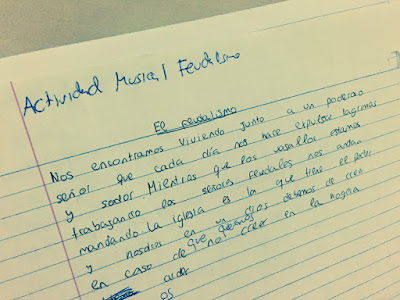 Actividad Musical Feudalismo
El feudalismo
Nos encontramos viviendo junto a un poderoso
señor que cada día nos hace expulsar lagrimas
y sudor Mientras que los vasallos estamos
trabajando los señores feudales nos andan
mandando La iglesia es la que tiene el poder
y nosotros en un dios debemos de creer
en caso de no creer en la hoguera
que queramos
arder
os